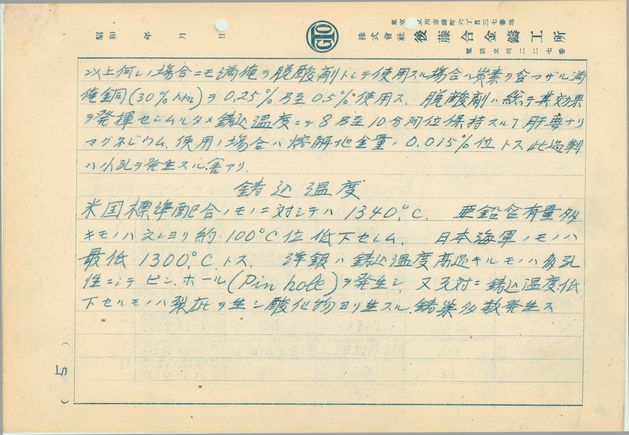 昭和 年 月 日
GTO
東京 立川市錦町六丁目三七番地
株式會社 後藤合金鑄工所
電話立川二二七番
以上何レノ場合ニモ満俺ヲ脱酸剤トシテ使用スル場合ハ炭素ヲ含マザル満
俺銅(30% Mn)ヲ 0.25%乃至0.5%使用ス、脱酸剤ハ総テ其効果
ヲ発揮セシムルタメ鋳込温度ニテ8乃至10分間位保持スルヿ肝要ナリ
マグネシウム使用ノ場合ハ熔解地金量ノ0.015%位トス此過剰
ハ小孔ヲ発生スル害アリ
鋳込温度
米国標準配合ノモノニ対シテハ 1340°C、亜鉛含有量多
キモノハ之レヨリ約100°C位低下セシム、日本海軍ノモノハ
最低1300°Cトス、洋銀ハ鋳込温度高過キルモノハ多孔
性ニシテピンホール(Pin hole)ヲ発生シ、又反対ニ鋳込温度低
下セルモノハ裂疵ヲ生シ酸化物ヨリ生スル鋳巣多数発生ス
(5)